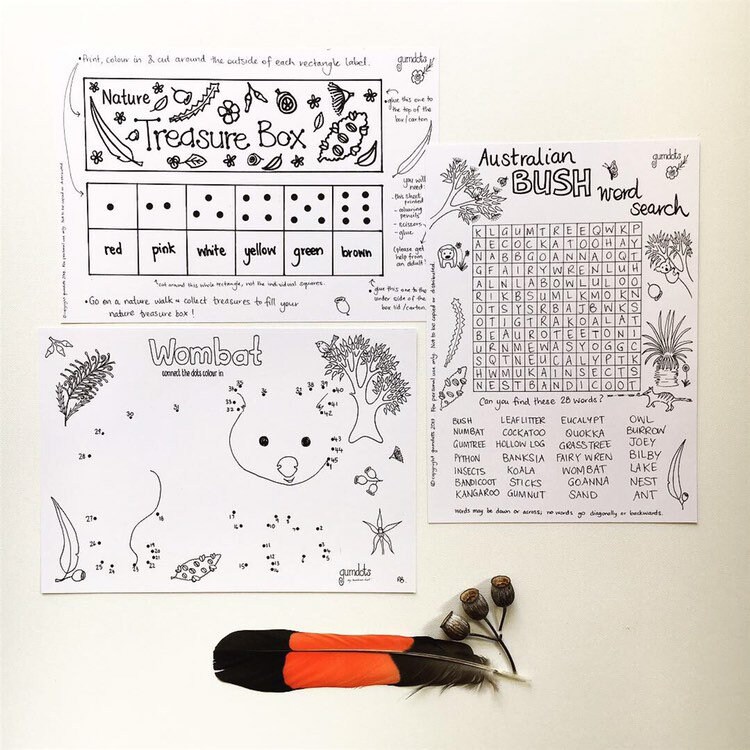 •Print, colour in & cut around the outside of each rectangle label.
gumdots
Nature
Treasure Box
•glue this one to
the top of the
box/carton.
you will
need:
- this sheet,
printed
- colouring
pencils
- scissors
- glue
(please get
help from
an adult)
red pink white yellow green brown
*cut around this whole rectangle, not the individual squares.
•glue this one to the
under side of the
box lid/carton.
•Go on a nature walk & collect treasures to fill your
nature treasure box!
Australian
BUSH word
search
gumdots
KLGUMTREEQWKP
AECOCKATOOHAY
NABBGOANNAOQT
GFAIRYWRENLUH
ALNLABOWLULOO
RIKBSUMLKMOKN
OTSYSRBAJBWKS
OTIGTRAKOALAT
BEAUROTEETONI
URNMEWASYOGGC
SQTNEUCALYPTK
HWMUKAINSECTS
NESTBANDICOOT
Can you find these 28 words?
BUSH LEAFLITTER EUCALYPT OWL
NUMBAT COCKATOO QUOKKA BURROW
GUMTREE HOLLOW LOG GRASSTREE JOEY
PYTHON BANKSIA FAIRY WREN BILBY
INSECTS KOALA WOMBAT LAKE
BANDICOOT STICKS GOANNA NEST
KANGAROO GUMNUT SAND ANT
words may be down or across, no words go diagonally or backwards.
©copyright gumdots 2019. for personal use only. Not to be copied or distributed.
Wombat
connect the dots, colour in
gumdots